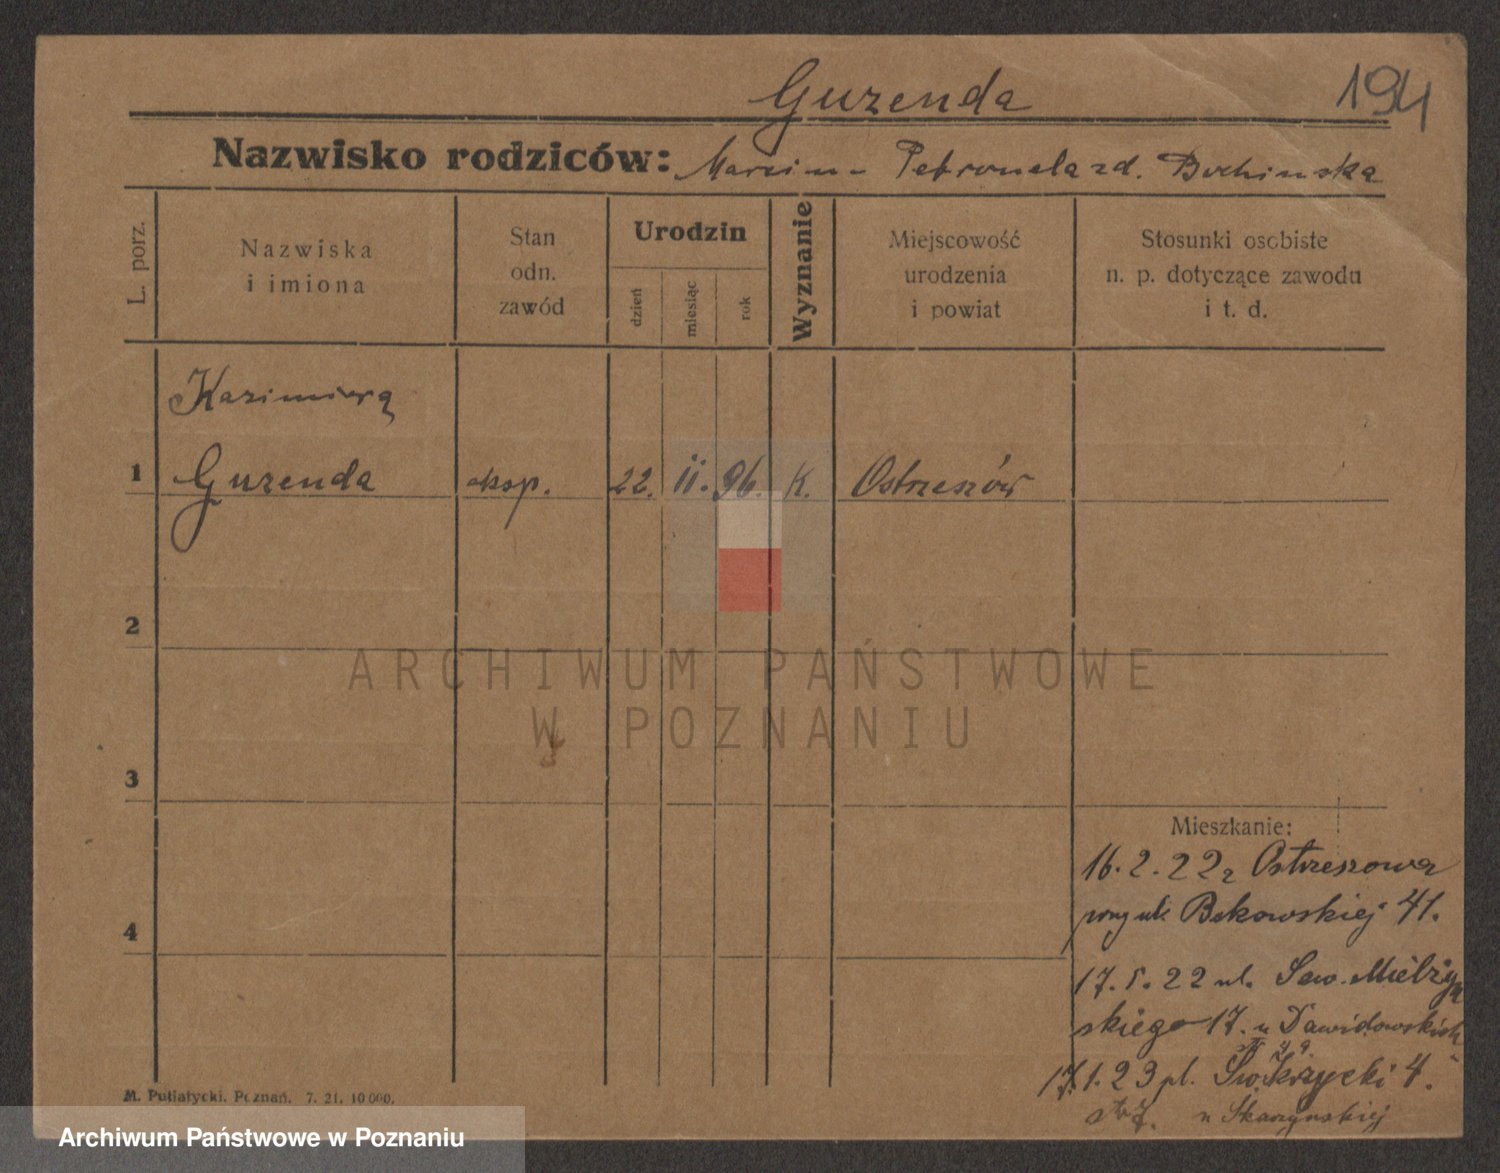 Guzenda
194
Nazwisko rodziców: Marcin - Petronela zd. Bochinska
L. porz.
Nazwiska
i imiona
Stan
odn.
zawód
Urodzin
dzień
miesiąc
rok
Wyznanie
Miejscowość
urodzenia
i powiat
Stosunki osobiste
n. p. dotyczące zawodu
i t. d.
Kazimierą
1 Guzenda eksp. 22. II. 96. K. Ostrzeszów
2
3
4
Mieszkanie:
16.2.22 z Ostrzeszowa
przy ul. 41.
17.5.22 ul. Sew. Mielżyń
skiego 17. u Dawidowskich
17.1.23 pl. Św. Krzycki 4.
u Skarzynskiej
M. Putiatycki, Poznań. 7. 21. 10 000.
ARCHIWUM PAŃSTWOWE
W POZNANIU
Archiwum Państwowe w Poznaniu